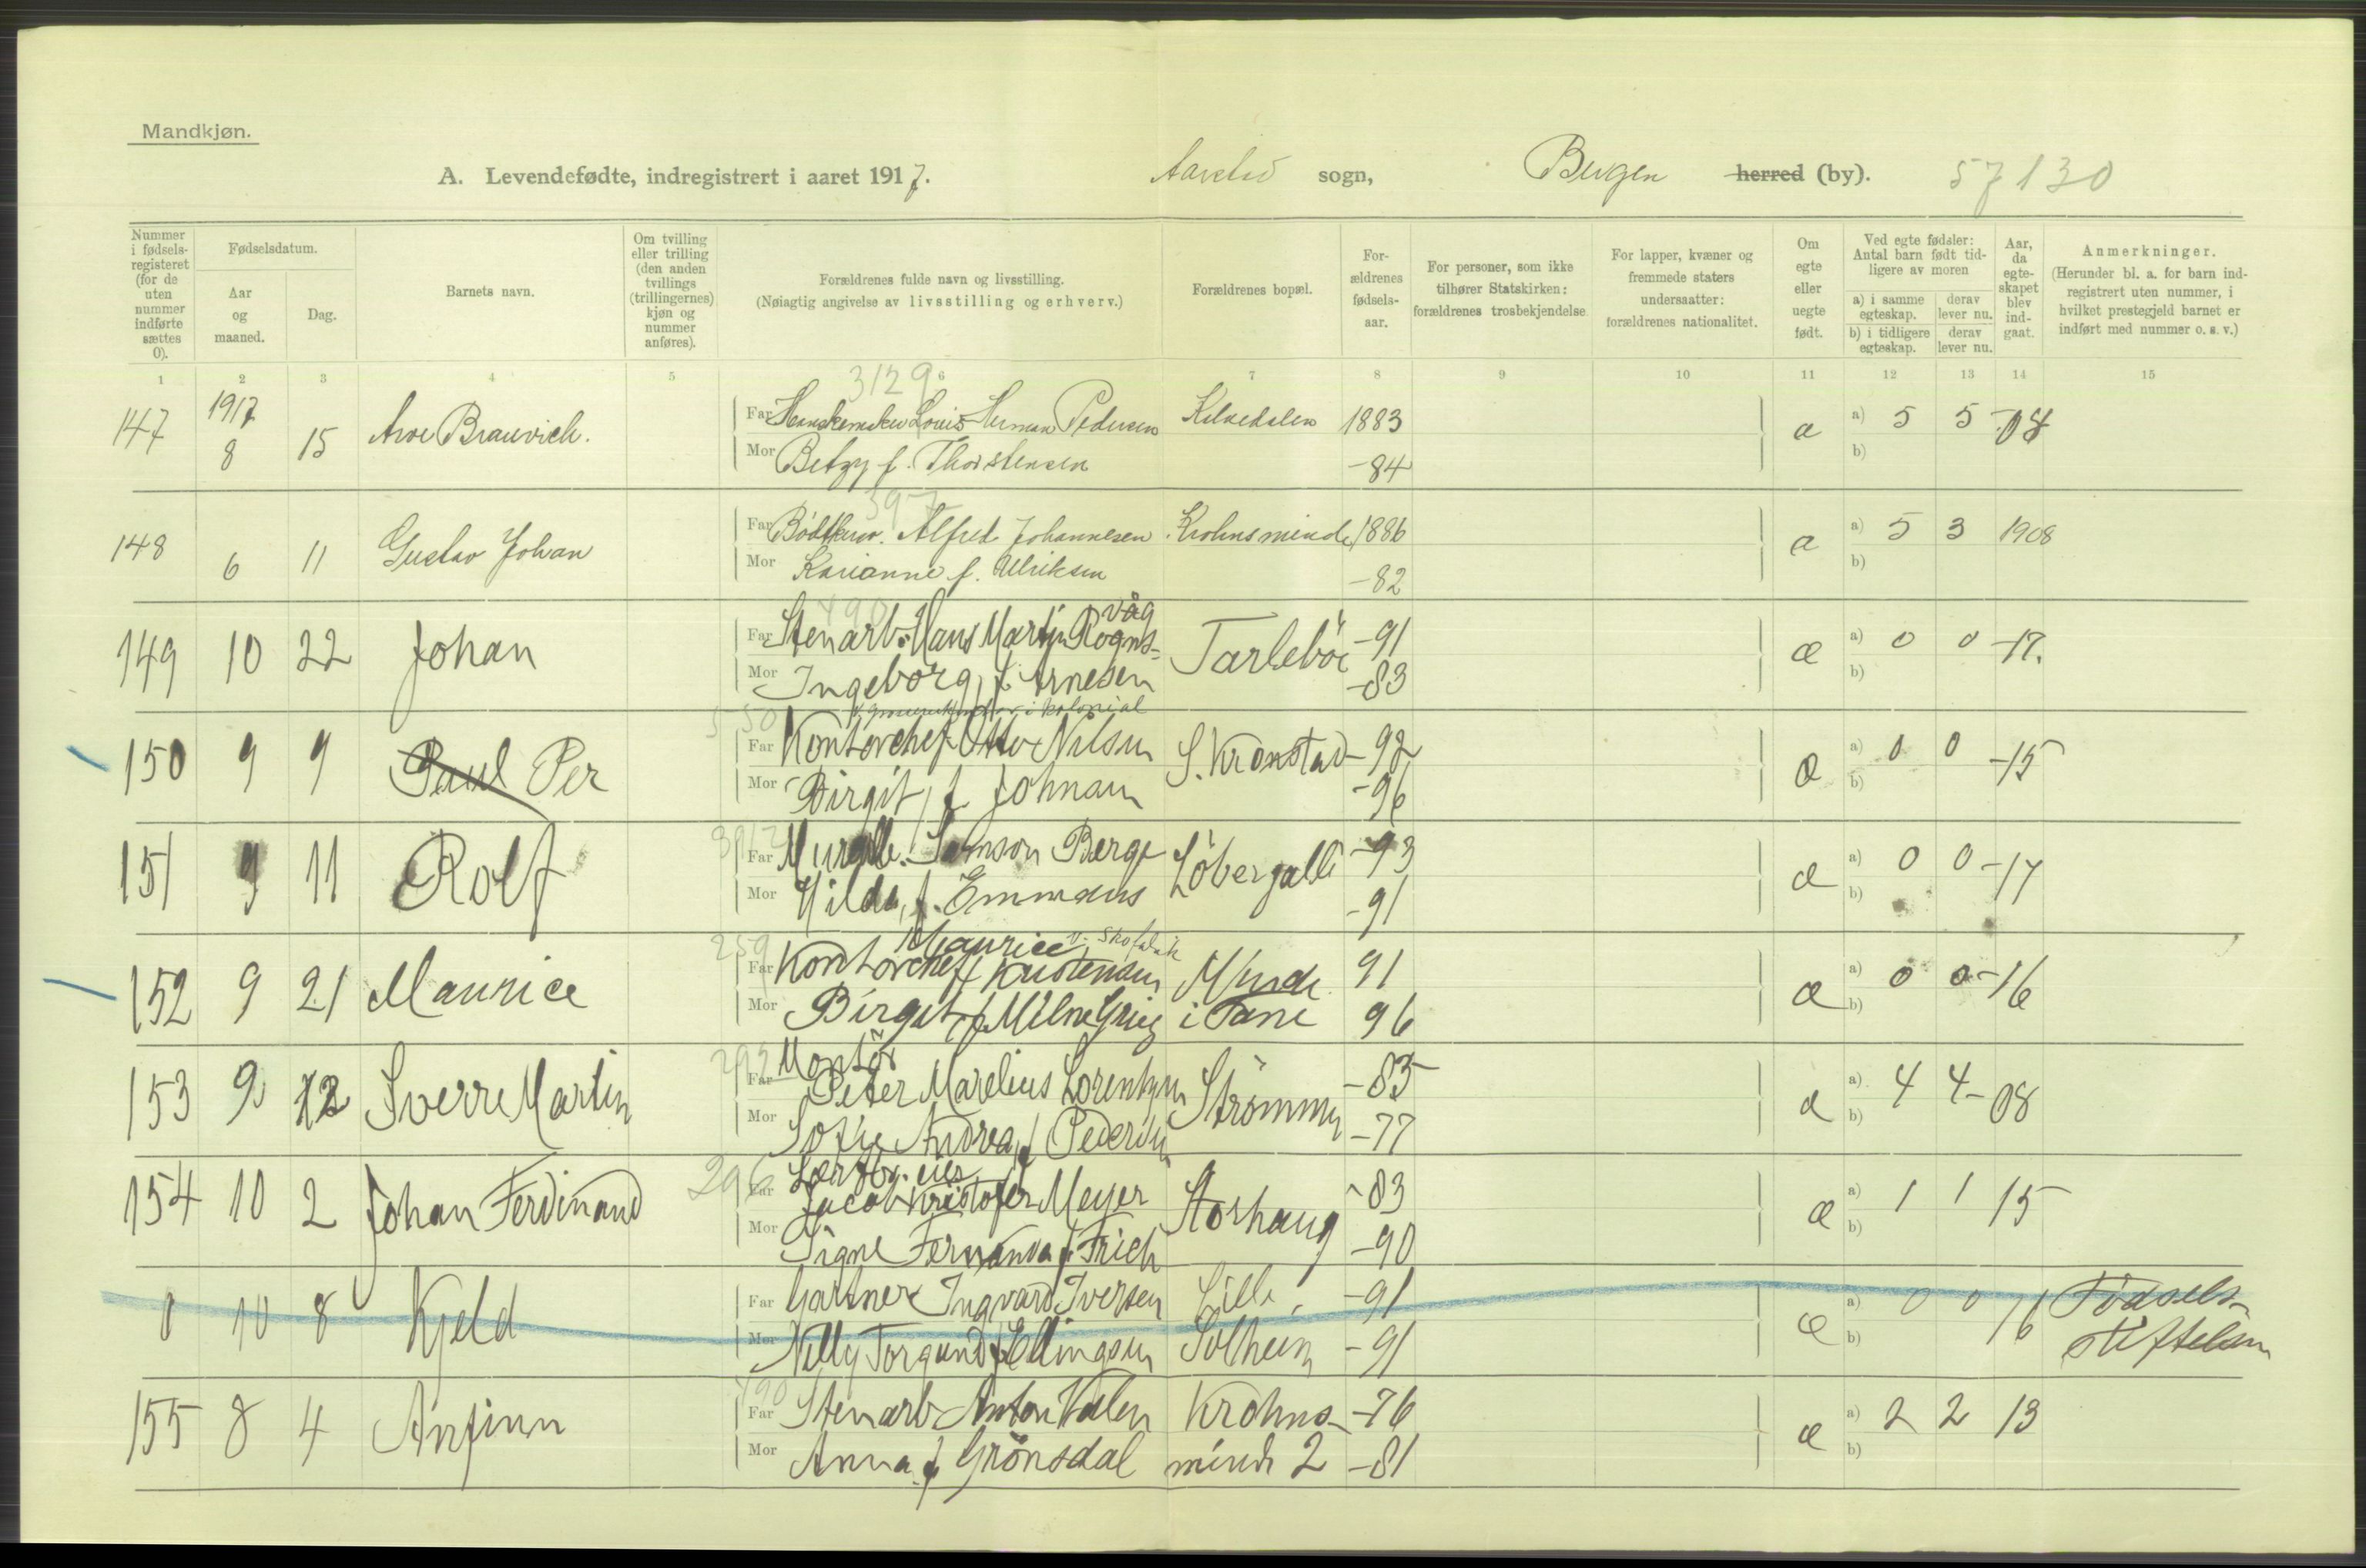 Mandkjøn.
A. Levendefødte, indregistrert i aaret 1917. Aarstad sogn, Bergen herred (by). 57130
Nummer i fødsels-registeret (for de uten nummer indførte sættes 0).
Fødselsdatum.
Aar og maaned.
Dag.
Barnets navn.
Om tvilling eller trilling (den anden tvillings (trillingernes) kjøn og nummer anføres).
Forældrenes fulde navn og livsstilling.
(Nøiagtig angivelse av livsstilling og erhverv.)
Forældrenes bopæl.
For-ældrenes fødsels-aar.
For personer, som ikke tilhører Statskirken: forældrenes trosbekjendelse
For lapper, kvæner og fremmede staters undersaatter: forældrenes nationalitet.
Om egte eller uegte født.
Ved egte fødsler: Antal barn født tid-ligere av moren
a) i samme egteskap. derav lever nu.
b) i tidligere egteskap. derav lever nu.
Aar, da egte-skapet blev ind-gaat.
Anmerkninger.
(Herunder bl. a. for barn ind-registrert uten nummer, i hvilket prestegjeld barnet er indført med nummer o. s. v.)
1 2 3 4 5 6 7 8 9 10 11 12 13 14 15
3129
147 1917 8 15 Arve Brauvich. Far Hanskemaker Louis Herman Pedersen Kalvedalen 1883 æ a) 5 5 -07
Mor Betzy f. Thorstensen -84 b)
397
148 6 11 Gustav Johan Far Bødtker. Alfred Johannesen Krohnsminde 1886 æ a) 5 3 1908
Mor Karianne f. Ulriksen -82 b)
490
149 10 22 Johan Far Stenarb. Hans Martin Rognsvåg Tarlebøe -91 æ a) 0 0 -17.
Mor Ingeborg, f. Arnesen -83 b)
550 i kolonial
150 9 9 Paul Per Far Kontorchef Otto Nilsen S. Kronstad -92 æ a) 0 0 -15
Mor Birgit, f. Johnsen -96 b)
151 9 11 Rolf Far Murarb. Samson Berge Løbergalli -93 æ a) 0 0 -17
Mor Hilda, f. Emmaus -91 b)
259 Maurice v. skofabrik
152 9 21 Maurice Far Kontorchef Kristensen Minde 91 æ a) 0 0 -16
Mor Birgit f. Milne Grieg i Fane 96 b)
293 Montør
153 9 12 Sverre Martin Far Peter Marelius Lorentzen Strømmen -85 æ a) 4 4 -08
Mor Sofie Andrea, f. Pedersen -77 b)
296
154 10 2 Johan Ferdinand Far Jacob Kristofer Meyer Storhaug -83 æ a) 1 1 15
Mor Signe Fernanda f. Frich -90 b)
0 10 8 Kjeld Far Gartner Ingvard Iversen Lille -91 æ a) 0 0 16 Fødsels-
Mor Nelly Torgund f. Ellingsen Solheim -91 b) stiftelsen
490
155 8 4 Arfinn Far Stenarb Anton Valen Krohns- -76 æ a) 2 2 13
Mor Anna f. Grönsdal minde 2 -81 b)